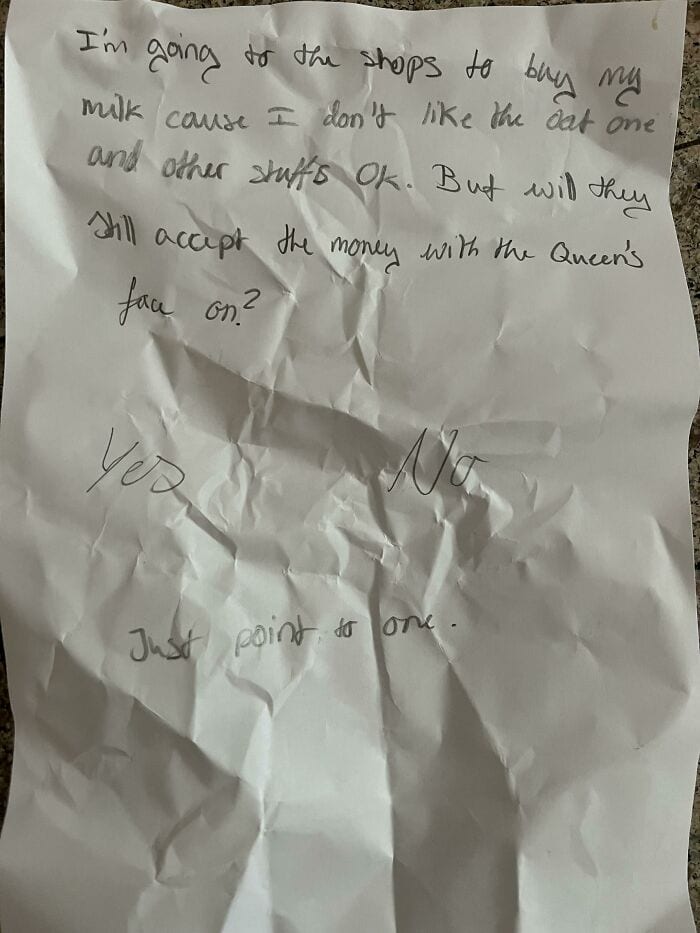 I'm going to the shops to buy my
milk cause I don't like the oat one
and other stuffs Ok. But will they
still accept the money with the Queen's
face on?
Yes No
Just point to one.